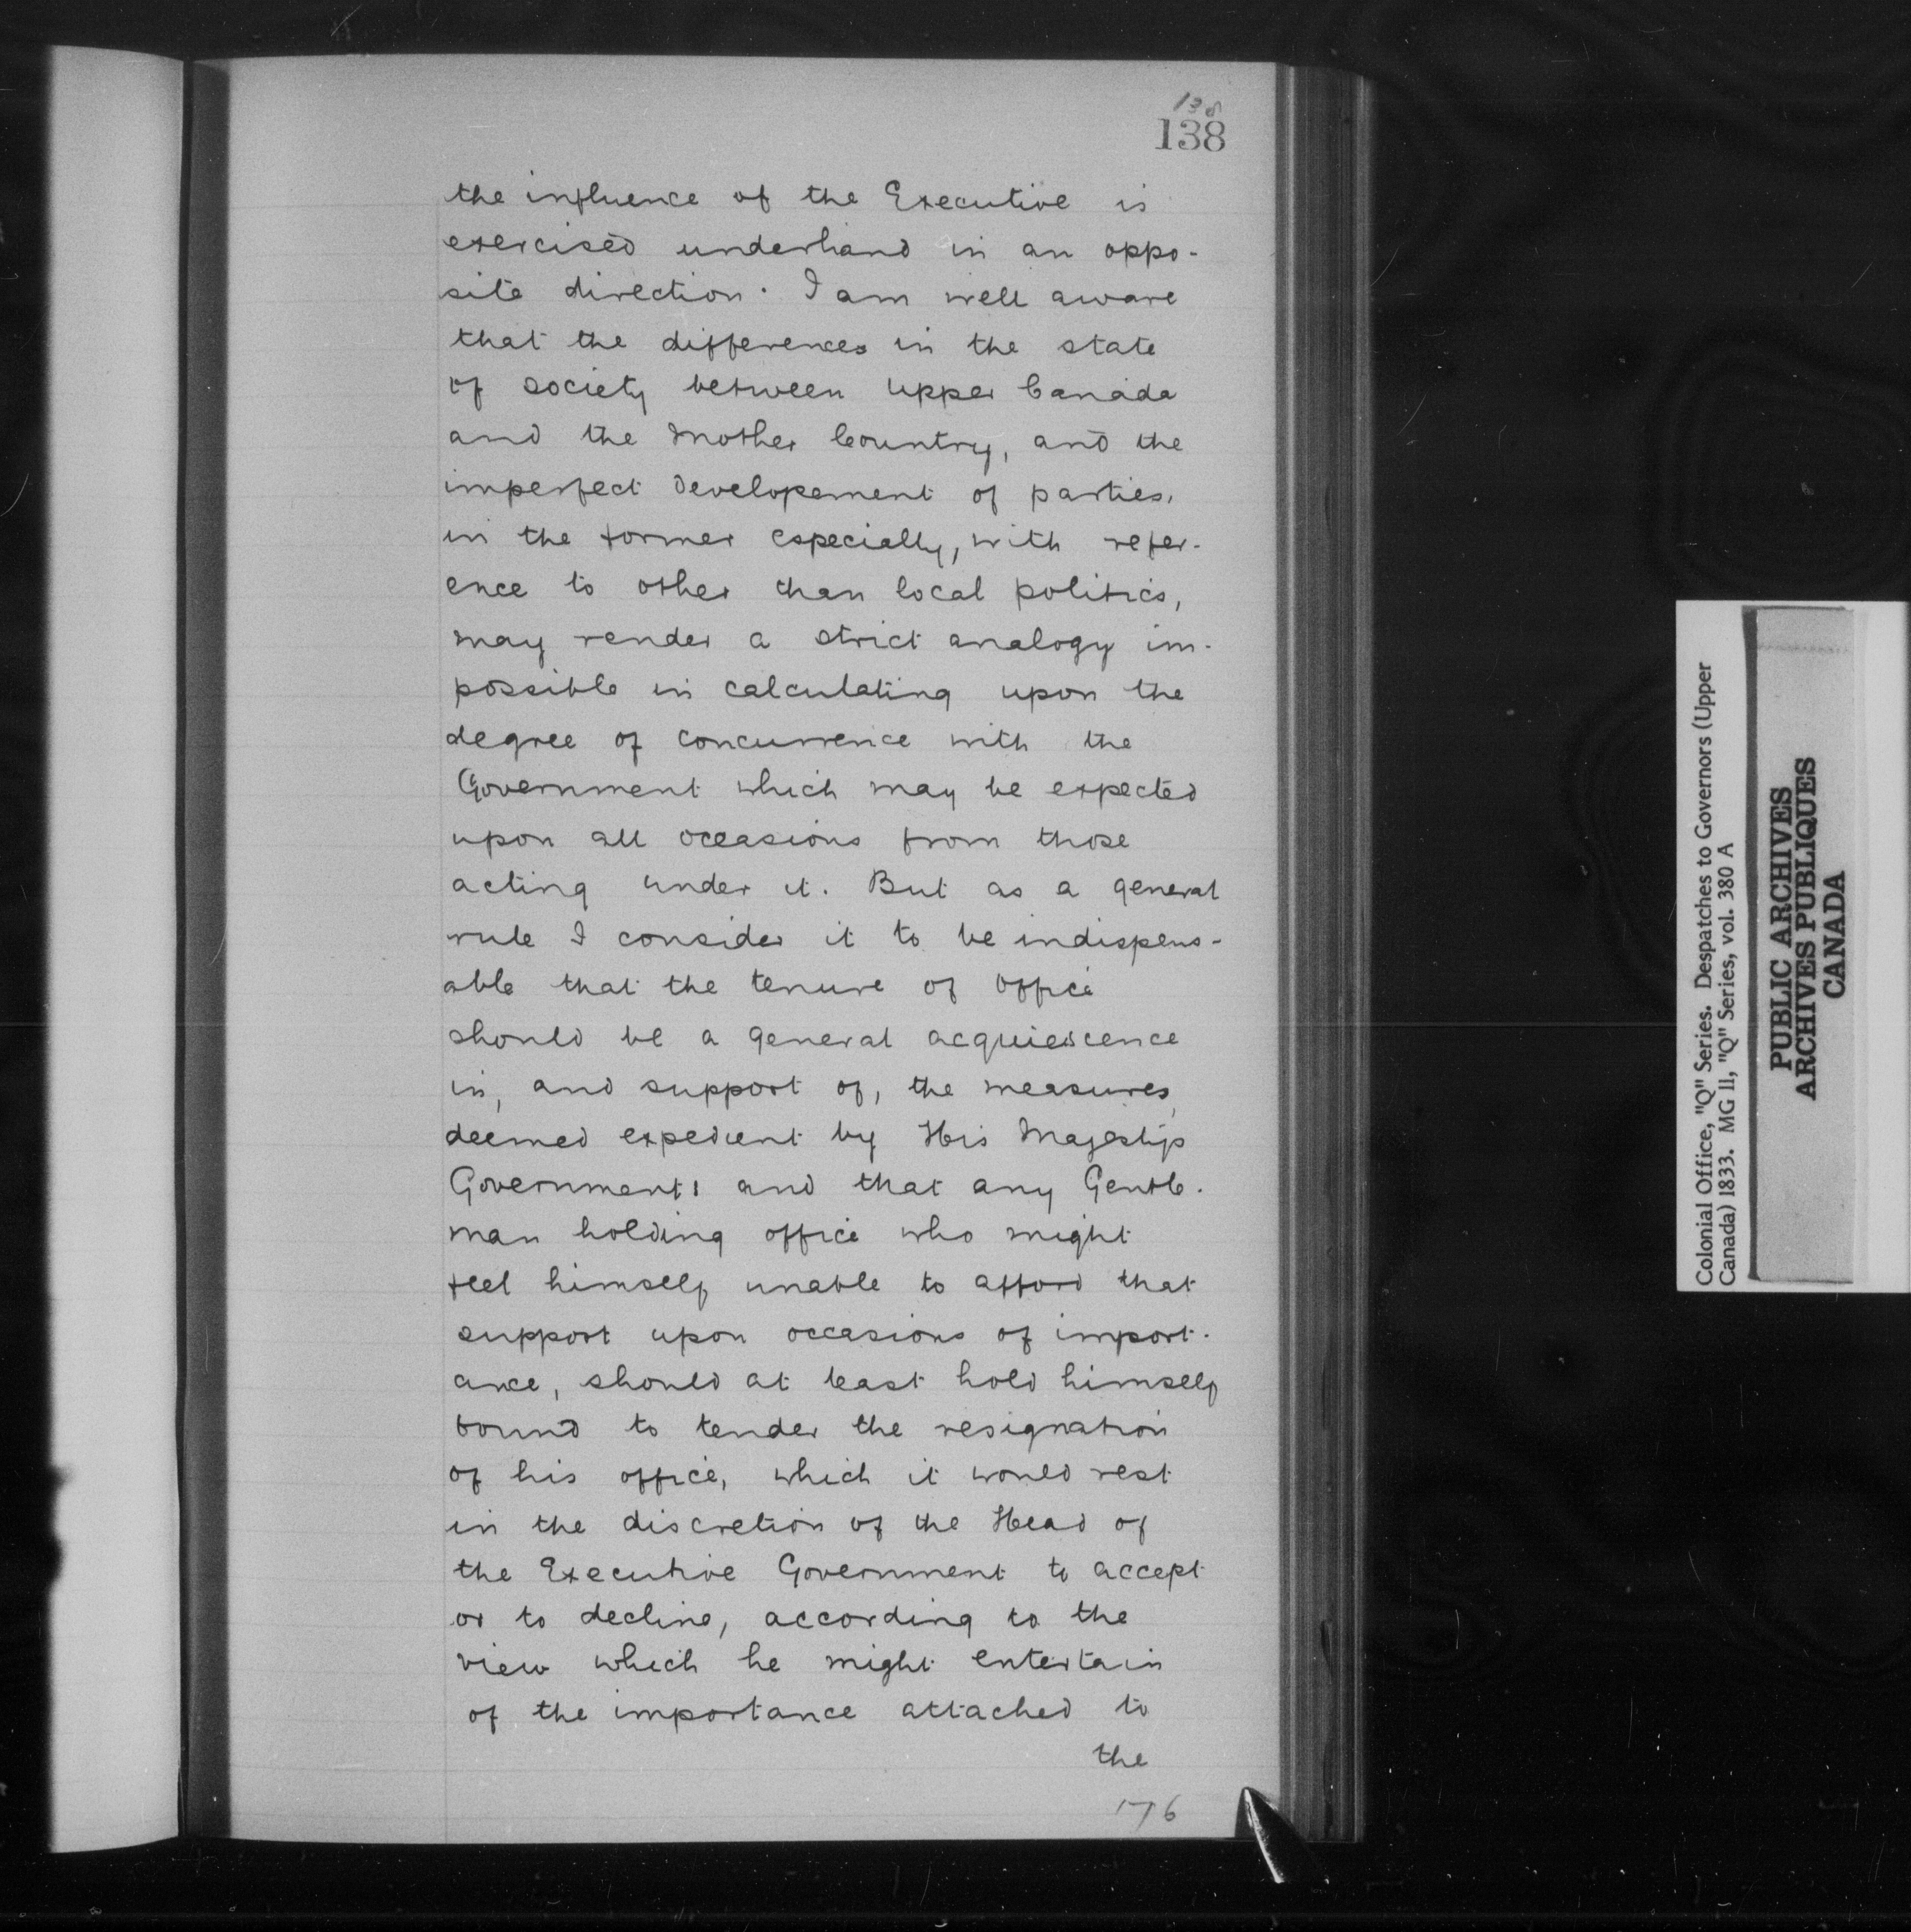 138
138
the influence of the Executive is
exercised underhand in an oppo-
site direction. I am well aware
that the differences in the state
of society between Upper Canada
and the Mother Country, and the
imperfect developement of parties,
in the former especially, with refer-
ence to other than local politics,
may render a strict analogy im-
possible in calculating upon the
degree of concurrence with the
Government which may be expected
upon all occasions from those
acting under it. But as a general
rule I consider it to be indispens-
able that the tenure of office
should be a general acquiescence
in, and support of, the measures
deemed expedient by His Majesty's
Government; and that any Gentle-
man holding office who might
feel himself unable to afford that
support upon occasions of import-
ance, should at least hold himself
bound to tender the resignation
of his office, which it would rest
in the discretion of the Head of
the Executive Government to accept
or to decline, according to the
view which he might entertain
of the importance attached to
the
176
Colonial Office, "Q" Series. Despatches to Governors (Upper
Canada) 1833. MG 11, "Q" Series, vol. 380 A
PUBLIC ARCHIVES
ARCHIVES PUBLIQUES
CANADA